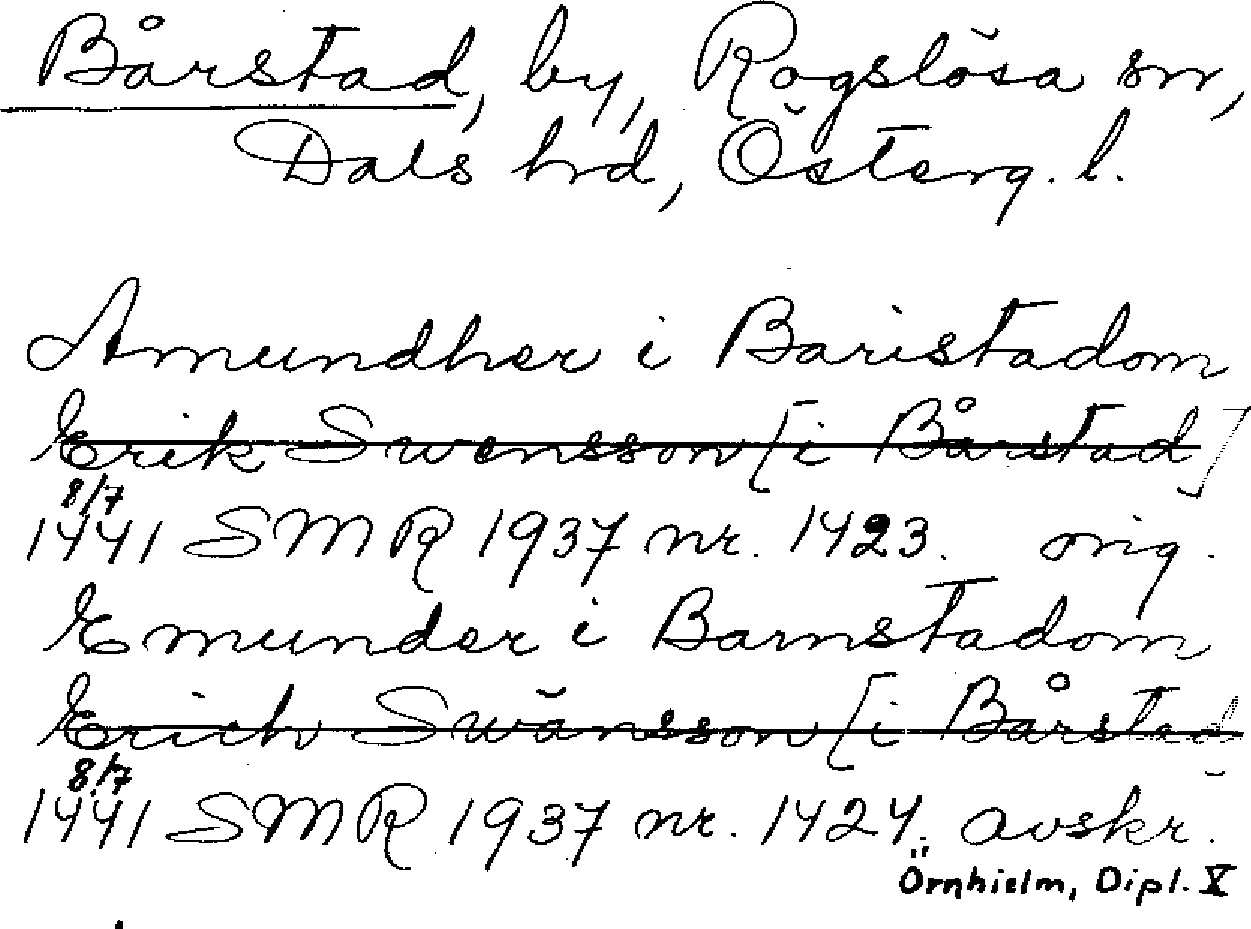 Bårstad, by, Rogslösa sn,
Dals hrd, Österg. l.
Amundher i Baristadom
Erik Swensson [i Bårstad]
8/7
1441 SMR 1937 nr. 1423. orig.
Emunder i Barnstadom
Erich Swänsson [i Bårstad
8/7
1441 SMR 1937 nr. 1424. avskr.
Örnhielm, Dipl. V